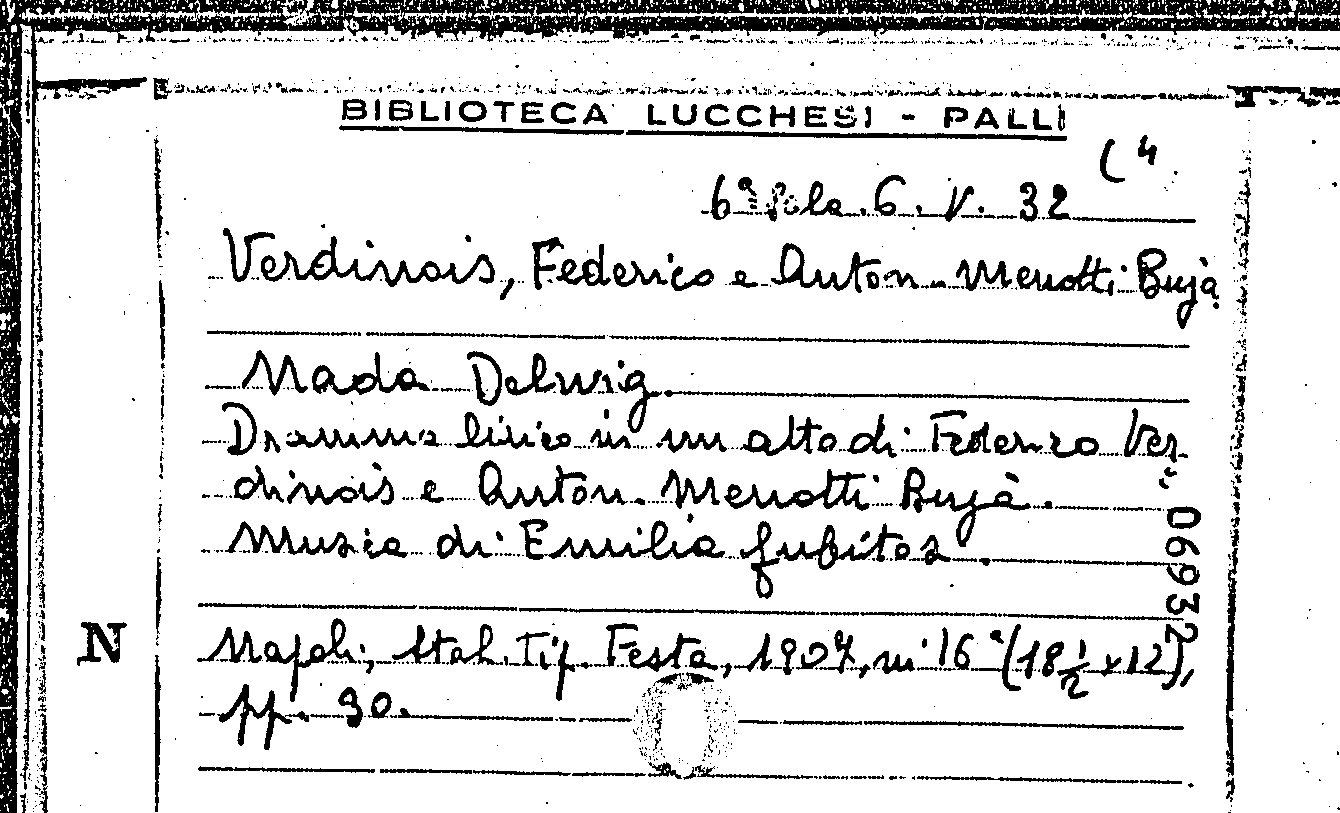 BIBLIOTECA LUCCHESI - PALLI
(4
6ª Sala. 6. V. 32
Verdinois, Federico e Anton. Menotti Bujà.
Nada Delwig.
Dramma lirico in un atto di Federico Ver-
dinois e Anton. Menotti Bujà.
Musica di Emilia Gubitosi.
06932
N
Napoli, Stab. Tip. Festa, 1907, in 16° (18 1/2 x 12),
pp. 30.